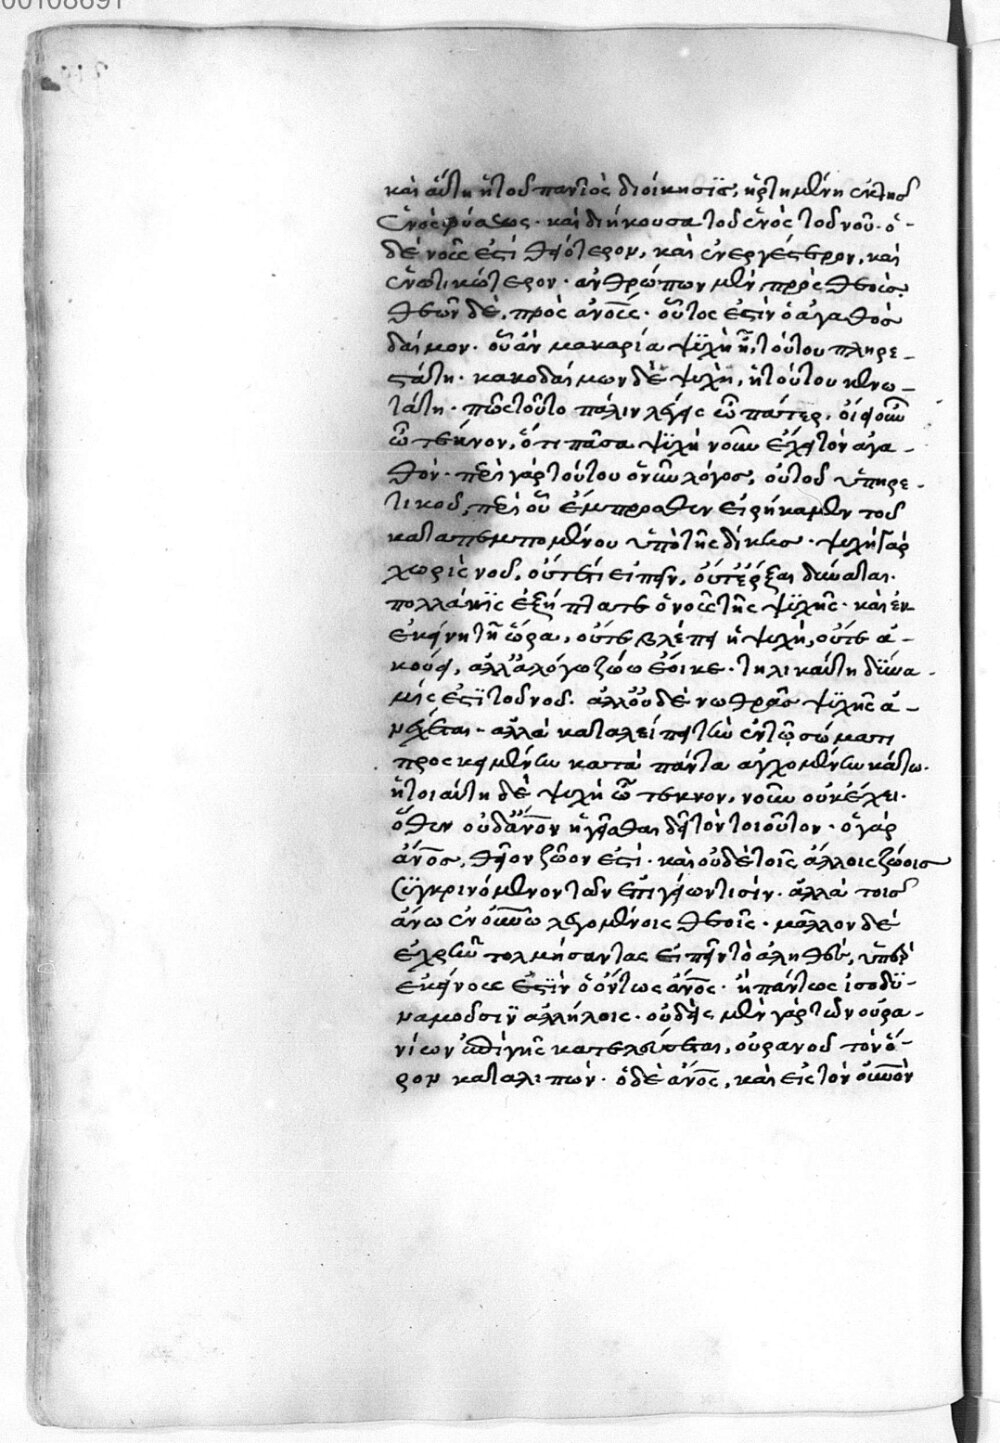 00108691
καὶ αὕτη ἡ τοῦ παντὸς διοίκησις, ἠρτημένη ἐκ τῆς
ἑνὸς φύσεως· καὶ διήκουσα τοῦ ἑνὸς τοῦ νοῦ· ὁ-
δὲ νοῦς ἐστὶ θειότερον, καὶ ἐνεργέστερον, καὶ
ἑνωτικώτερον· ἀνθρώπων μὲν, πρὸς θεούς,
θεῶν δὲ, πρὸς ἀνους· οὗτος ἐστὶν ὁ ἀγαθὸς
δαίμον· οὗ ἂν μακαρία ψϋχὴ ἢ τούτου πληρε-
στάτη· κακοδαίμων δὲ ψυχὴ, ἡ τούτου κενω-
τάτη· πῶς τοῦτο πάλιν λέγεις ὦ πάτερ, οἴει οὖν
ὦ τέκνον, ὅτι πᾶσα ψϋχὴ νοῦν ἔχει τὸν ἀγα-
θόν· περὶ γὰρ τούτου ὁ νῦν λόγος, οὐ τοῦ ὑπηρε-
τικοῦ, περὶ οὗ ἔμπροσθεν εἰρήκαμεν τοῦ
καταπεμπομένου ὑπὸ τῆς δίκης· ψυχὴ γὰρ
χωρὶς νοῦ, οὔτέ τι εἰπεῖν, οὔτ' ἔρξαι δύναται·
πολλάκϊς ἐξήπτατε ὁ νοῦς τῆς ψϋχῆς· καὶ ἐν
ἐκείνη τῆ ὥρα, οὔτε βλέπει ἡ ψυχὴ, οὔτε ἀ-
κούει, ἀλλ' ἀλόγω ζώω ἔοικε· τηλικαύτη δϋνα-
μίς ἐστϊ τοῦ νοῦ· ἀλλ' οὐδὲ νωθρᾶς ψϋχῆς ἀ-
νέχεται· ἀλλὰ καταλείπει τὴν ἐν τῷ σώματι
προσκειμένην κατὰ πάντα ἀγχομένην κάτω·
ἡ τοιαύτη δὲ ψυχὴ ὦ τέκνον, νοῦν οὐκ ἔχει·
ὅθεν οὐδ' ἄνον ἡγεῖσθαι δεῖ τὸν τοιοῦτον· ὁ γὰρ
ἄνος, θεῖον ζῶον ἐστὶ· καὶ οὐδὲ τοῖς ἄλλοις ζώοις
σϋγκρινόμενον τῶν ἐπιγείων τισίν· ἀλλὰ τοῖς
ἄνω ἐν οὐνῶ λεγομένοις θεοῖς· μᾶλλον δὲ
εἰ χρὴ τολμήσαντας εἰπεῖν τὸ ἀληθὲς, ὑπὲρ
ἐκείνους ἐστϊν ὁ ὄντως ἄνος· ἢ πάντως ἰσοδϋ-
ναμοῦσιν ἀλλήλοις· οὐδεὶς μὲν γὰρ τῶν οὐρα-
νίων ἐπὶ γῆς κατελεύσεται, οὐρανοῦ τὸν ὅ-
ρον καταλιπών· ὁ δὲ ἄνος, καὶ εἰς τὸν οὐνὸν